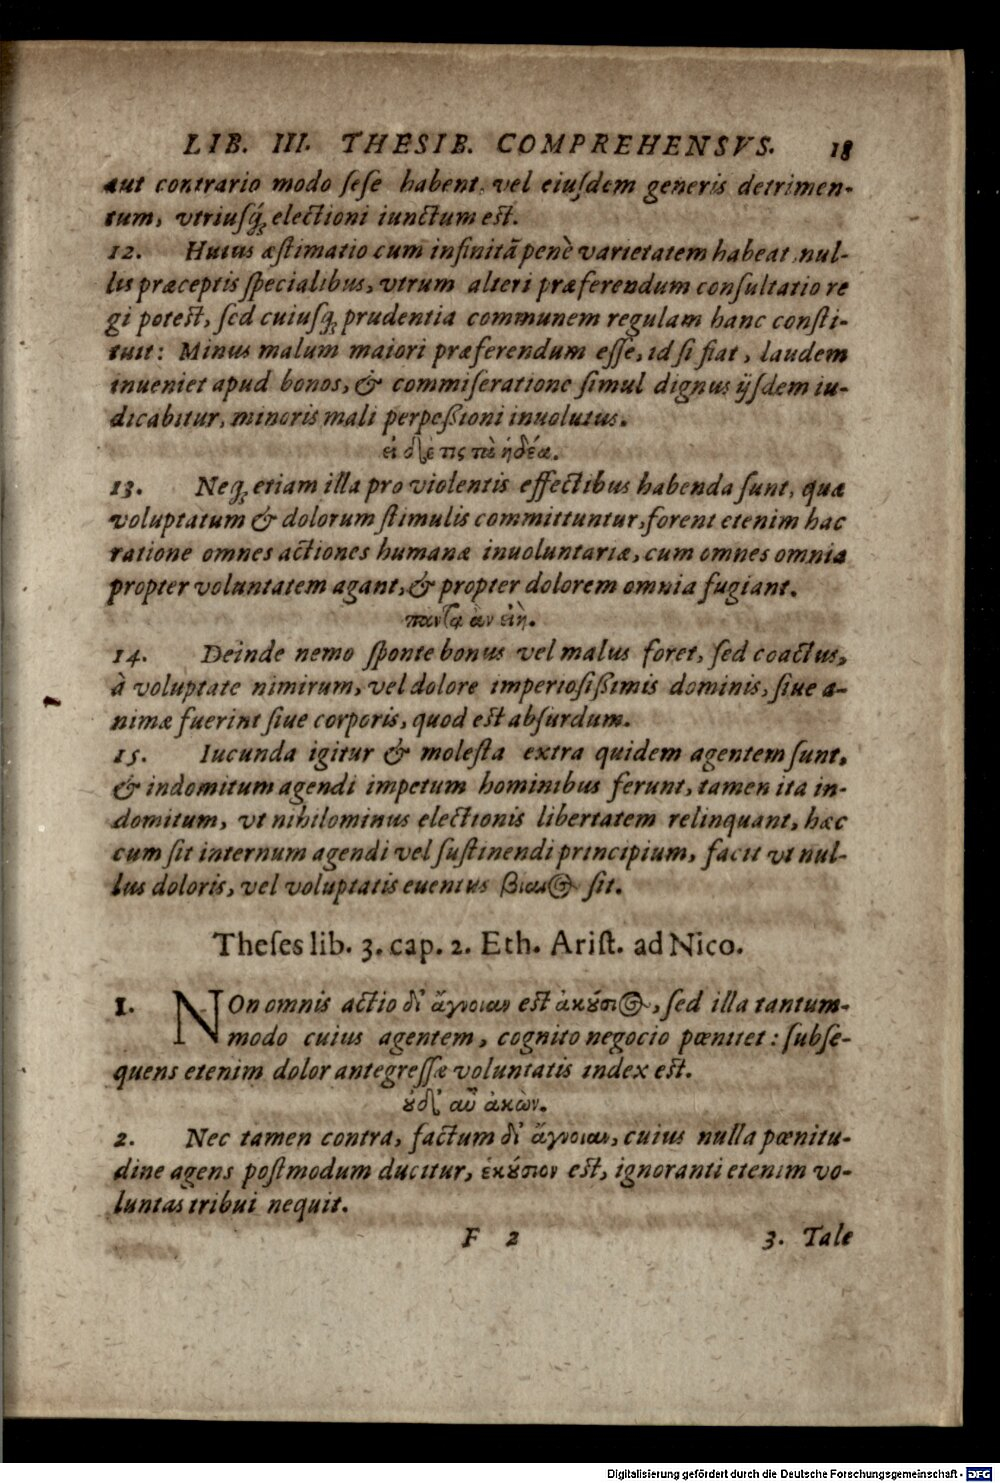 LIB. III. THESIB. COMPREHENSVS. 18
aut contrario modo ſeſe habent, vel eiuſdem generis detrimen-
tum, vtriuſq́; electioni iunctum est.
12. Huius æſtimatio cum infinitã penè varietatem habeat, nul-
lis præceptis ſpecialibus, vtrum alteri præferendum conſultatio re
gi potest, ſed cuiuſq; prudentia communem regulam hanc conſti-
tuit: Minus malum maiori præferendum eſſe, id ſi fiat, laudem
inueniet apud bonos, & commiſeratione ſimul dignus ijſdem iu-
dicabitur, minoris mali perpeßioni inuolutus.
εἰ δέ τις τὰ ἡδέα.
13. Neq; etiam illa pro violentis effectibus habenda ſunt, quæ
voluptatum & dolorum ſtimulis committuntur, forent etenim hac
ratione omnes actiones humanæ inuoluntariæ, cum omnes omnia
propter voluntatem agant, & propter dolorem omnia fugiant.
πάντα ἂν εἴη.
14. Deinde nemo ſponte bonus vel malus foret, ſed coactus,
à voluptate nimirum, vel dolore imperioſißimis dominis, ſiue a-
nimæ fuerint ſiue corporis, quod est abſurdum.
15. Iucunda igitur & moleſta extra quidem agentem ſunt,
& indomitum agendi impetum hominibus ferunt, tamen ita in-
domitum, vt nihilominus electionis libertatem relinquant, hæc
cum ſit internum agendi vel ſuſtinendi principium, facit vt nul-
lus doloris, vel voluptatis euentus βιαιος ſit.
Theſes lib. 3. cap. 2. Eth. Ariſt. ad Nico.
1. NOn omnis actio δι' ἄγνοιαν est ἀκούσιος, ſed illa tantum-
modo cuius agentem, cognito negocio pœnitet: ſubſe-
quens etenim dolor antegreſſæ voluntatis index est.
οὐδ' αὖ ἀκὼν.
2. Nec tamen contra, factum δι' ἄγνοιαν, cuius nulla pœnitu-
dine agens poſtmodum ducitur, ἑκούσιον est, ignoranti etenim vo-
luntas tribui nequit.
F 2 3. Tale
Digitalisierung gefördert durch die Deutsche Forschungsgemeinschaft - DFG